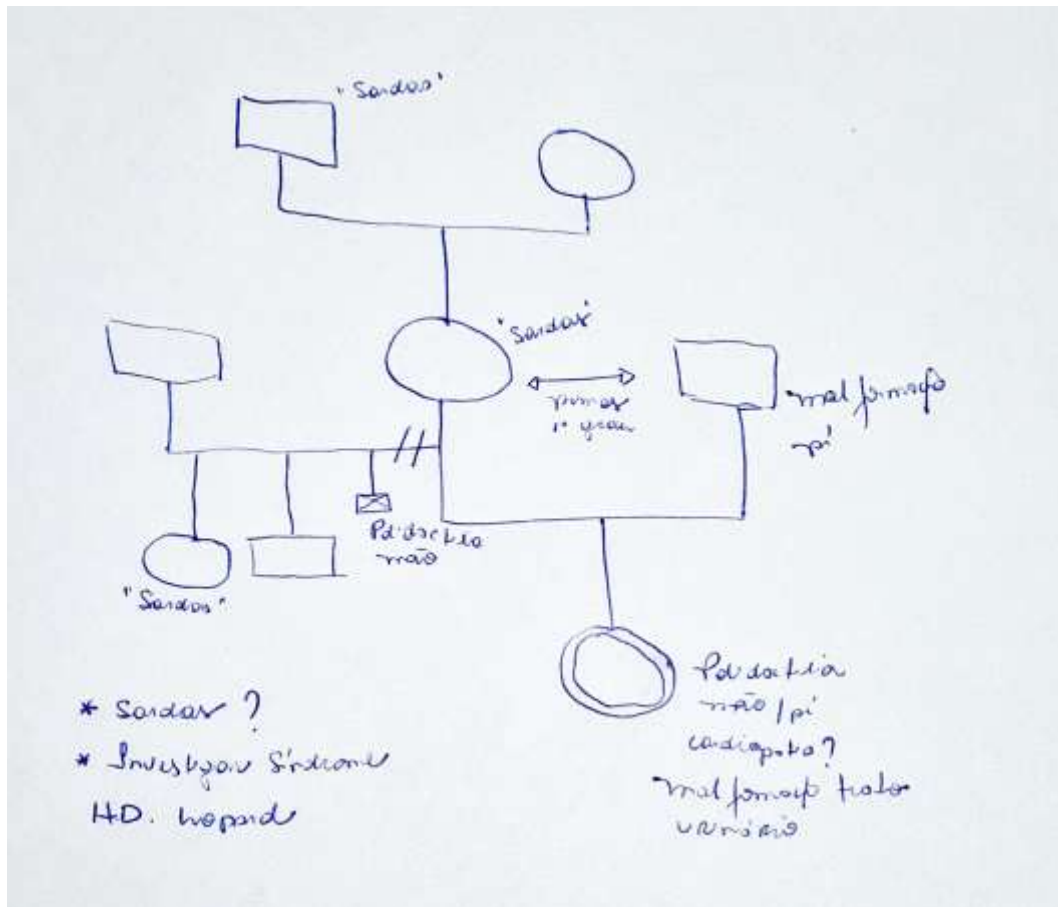 "Sardas"
"Sardas"
primos
1º grau
mal formação
pé
Polidactilia
mão
"Sardas"
Polidactilia
mão / pé
cardiopata?
mal formação trato
urinário
* Sardas ?
* Investigar Síndrome
HD. Leopard